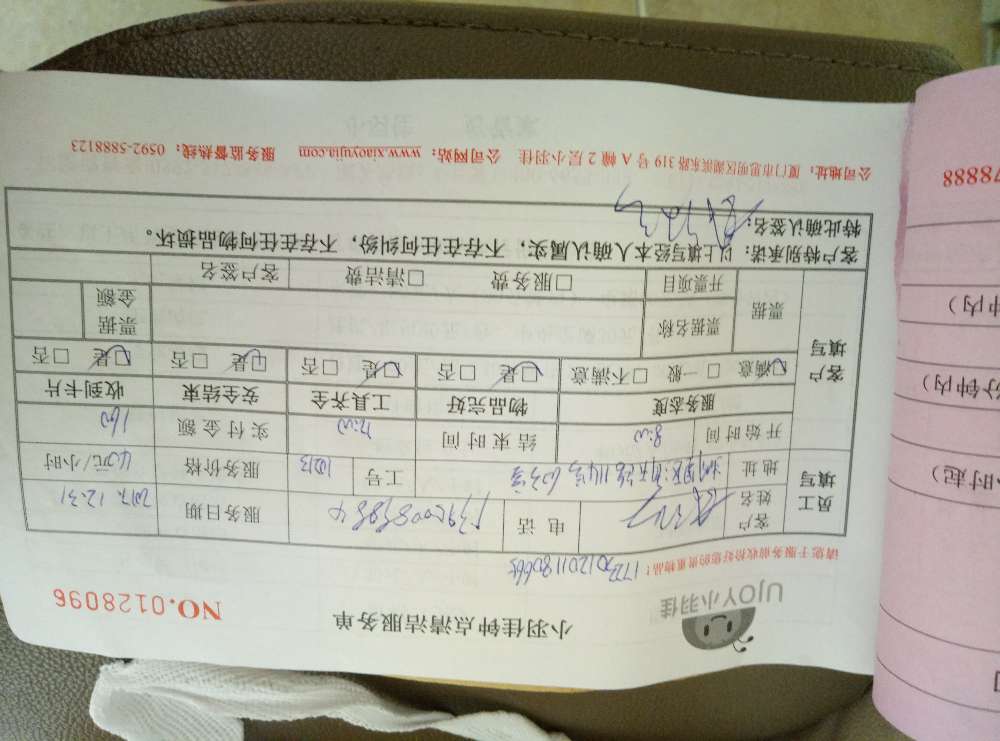 UJOY小羽佳
小羽佳钟点清洁服务单
NO.0128096
请您于服务前收拾好您的贵重物品！
员工填写
客户姓名
电话
服务日期 2017.12.31
地址
工号
服务价格 40元/小时
开始时间 8:00 结束时间 12:00 实付金额 160
客户填写
服务态度 物品完好 工具齐全 安全结束 收到卡片
☑满意 □一般 □不满意 ☑是 □否 ☑是 □否 ☑是 □否 ☑是 □否
票据 票据名称 票据金额
开票项目 □服务费 □清洁费 客户签名
客户特别承诺：以上填写经本人确认属实，不存在任何纠纷，不存在任何物品损坏。
特此确认签名：
公司地址：厦门市思明区湖滨东路 319 号 A 幢 2 层小羽佳 公司网站：www.xiaoyujia.com 服务监督热线：0592-5888123
78888
小时起）
分钟内）
钟内）